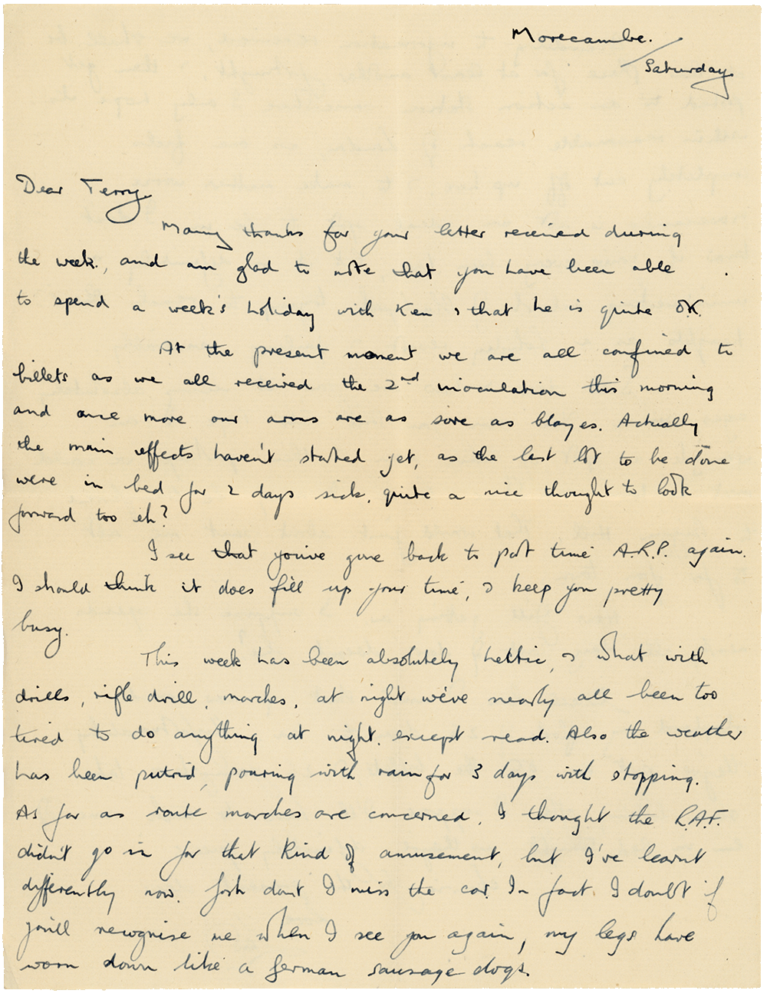 Morecambe.
Saturday
Dear Terry,
Many thanks for your letter received during
the week, and am glad to note that you have been able
to spend a week's holiday with Ken & that he is quite OK.
At the present moment we are all confined to
billets as we all received the 2nd inoculation this morning
and once more our arms are as sore as blazes. Actually
the main effects haven't started yet, as the last lot to be done
were in bed for 2 days sick, quite a nice thought to look
forward too eh?
I see that you've gone back to part time A.R.P. again.
I should think it does fill up your time, & keep you pretty
busy.
This week has been absolutely hettic, & what with
drills, rifle drill, marches, at night we've nearly all been too
tired to do anything at night, except read. Also the weather
has been putrid, pouring with rain for 3 days with stopping.
As far as route marches are concerned, I thought the R.A.F.
didn't go in for that kind of amusement, but I've learnt
differently now. Gosh dont I miss the car. In fact I doubt if
you'll recognise me when I see you again, my legs have
worn down like a german sausage dogs.